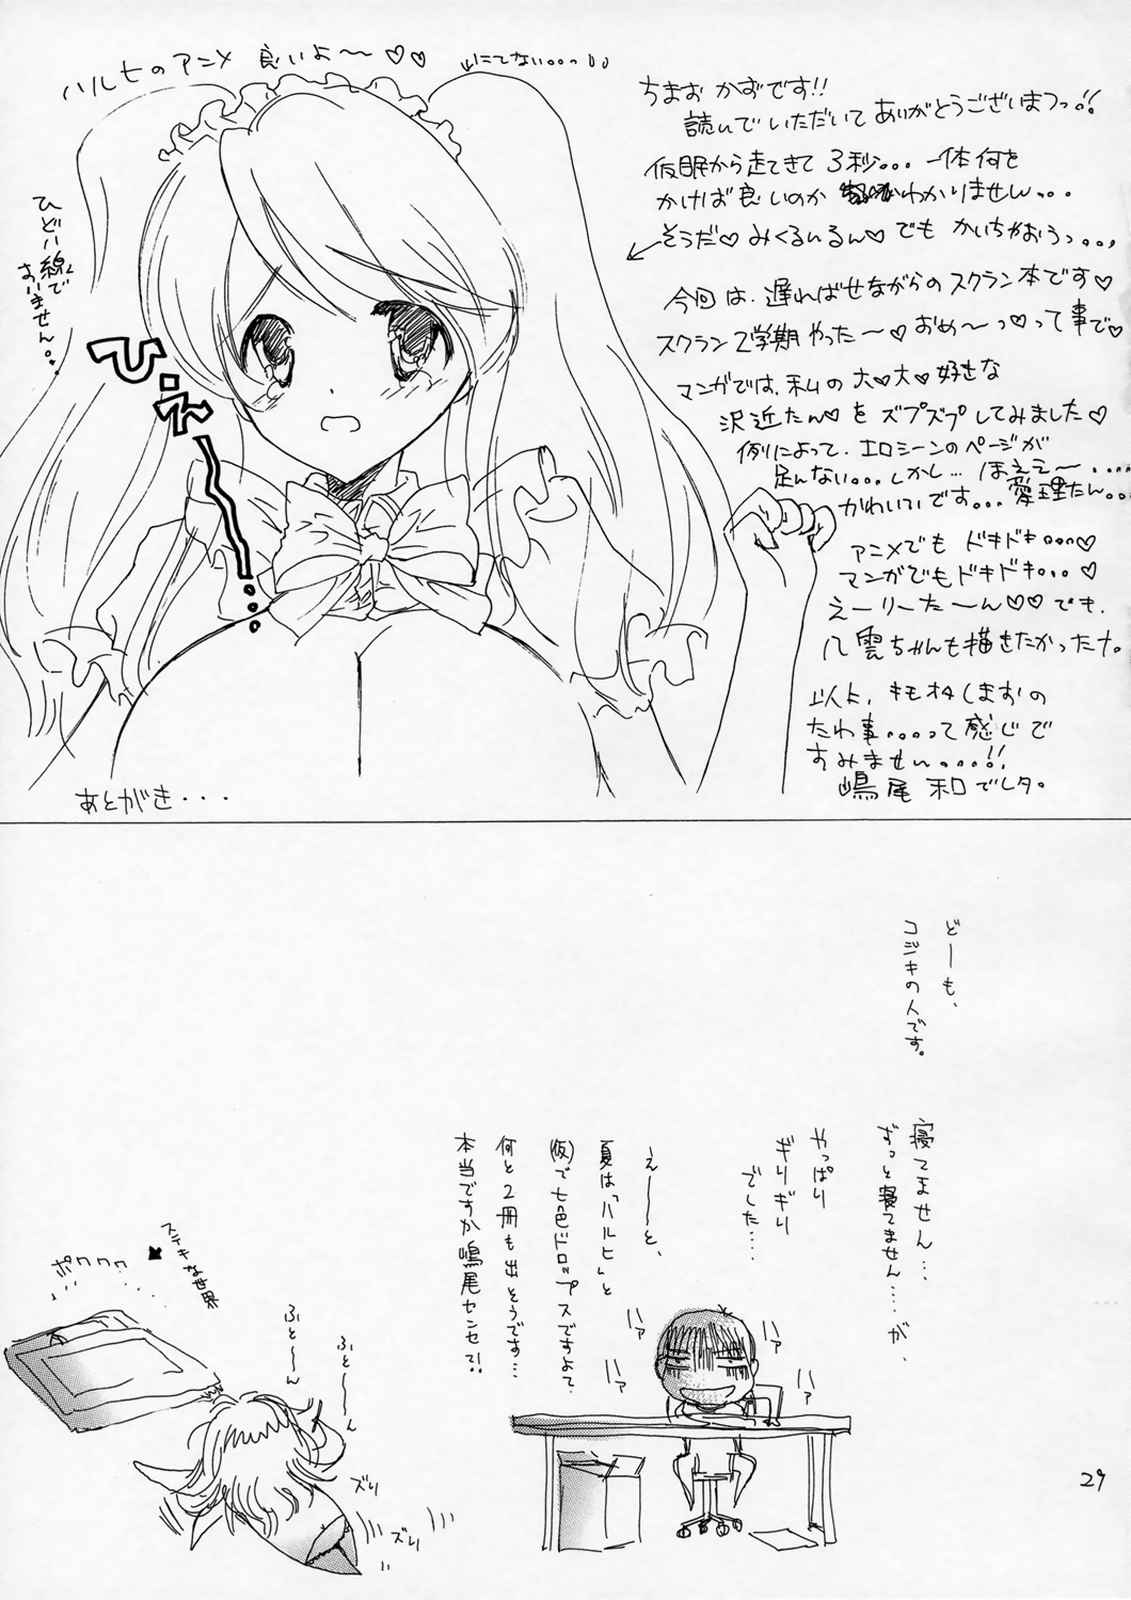 ハルヒのアニメ 良いよ～♡♡
↙にてない。。っ
ちまお かずです!!
読んでいただいてありがとうございまっっ!!
仮眠から走てきて 3秒。。。一体何を
かけば良いのか わかりません。。。
そうだ♡みくるぃるん♡でも かいちがおうっ。。,
今回は、遅ればせながらのスクラン本です♡
スクラン2学期やった～♡おめ～っ♡って事で♡
マンガでは、私の大♡大♡好きな
沢近たん♡を ズプズプしてみました♡
例によって、エロシーンのページが
足んない。。。しかし… ほぇえ～....
かわいいです。。。愛理たん。。
アニメでも ドキドキ。。。♡
マンガでもドキドキ。。。♡
えーリーた～ん♡♡でも、
八雲ちゃんも描きたかったナ。
以上、キモオタしまおの
たわ事。。。。って感じで
すみませぃ。。。。!!
嶋尾 和でしタ。
ひどい線で
すいません。
ひ、え～...
あとがき・・・
どーも、
コジキの人です。
寝てません…
ずっと寝てません……が、
やっぱり
ギリギリ
でした……
え～～と、
夏は「ハルヒ」と
(仮)で七色ドロップスですよて
何と2冊も出そうです…
本当ですか嶋尾センセ?!
ハァ
ハァ
ハァ
ハァ
ステキな世界
ポワワワ
ふと～～ん
ふと～～ん
ズリ
ズリ
29